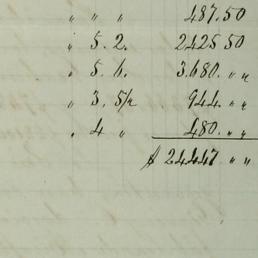 " " " 487.50
" 5. 2. 2425 50
" 5. 6. 3.680. " "
" 3. 5/2 944. " "
" 4 " 480. " "
$ 24447 " "